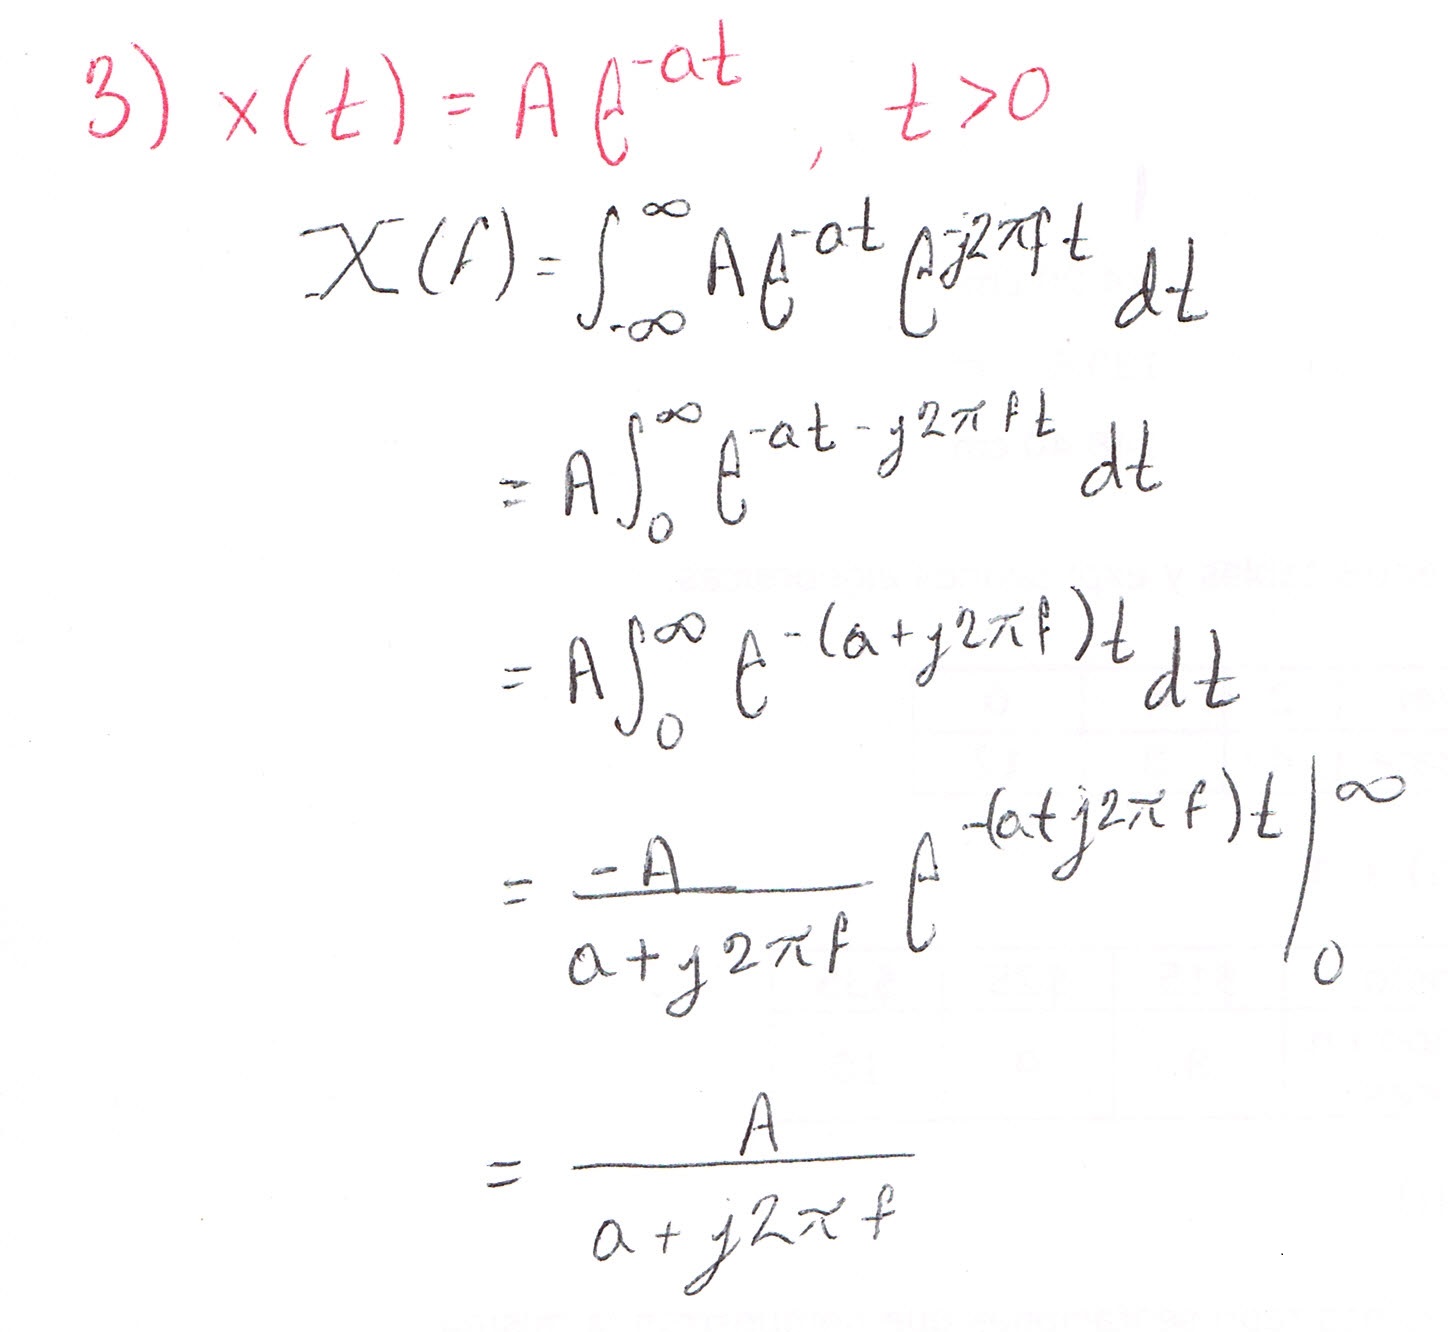 3) x(t) = A e^{-at}, t>0
X(f) = ∫_{-∞}^{∞} A e^{-at} e^{-j2πft} dt
= A ∫_{0}^{∞} e^{-at-j2πft} dt
= A ∫_{0}^{∞} e^{-(a+j2πf)t} dt
= \frac{-A}{a+j2πf} e^{-(a+j2πf)t} |_{0}^{∞}
= \frac{A}{a+j2πf}